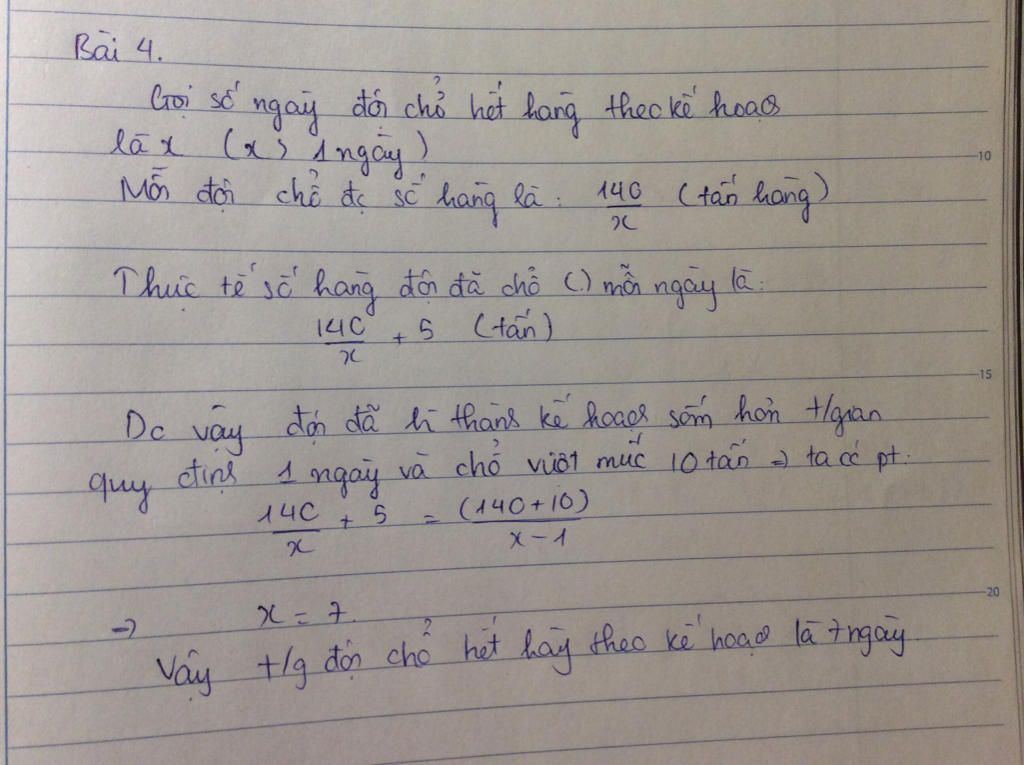 Bài 4.
Gọi số ngày đội chở hết hàng theo kế hoạch
là x (x > 1 ngày)
10
Mỗi đội chở đc số hàng là: 140/x (tấn hàng)
Thực tế số hàng đội đã chở (.) mỗi ngày là:
140/x + 5 (tấn)
15
Do vậy đội đã h thành kế hoạch sớm hơn t/gian
quy định 1 ngày và chở vượt mức 10 tấn => ta có pt:
140/x + 5 = (140+10)/x-1
20
→ x = 7.
Vậy t/g đội chở hết hàg theo kế hoạch là 7 ngày.